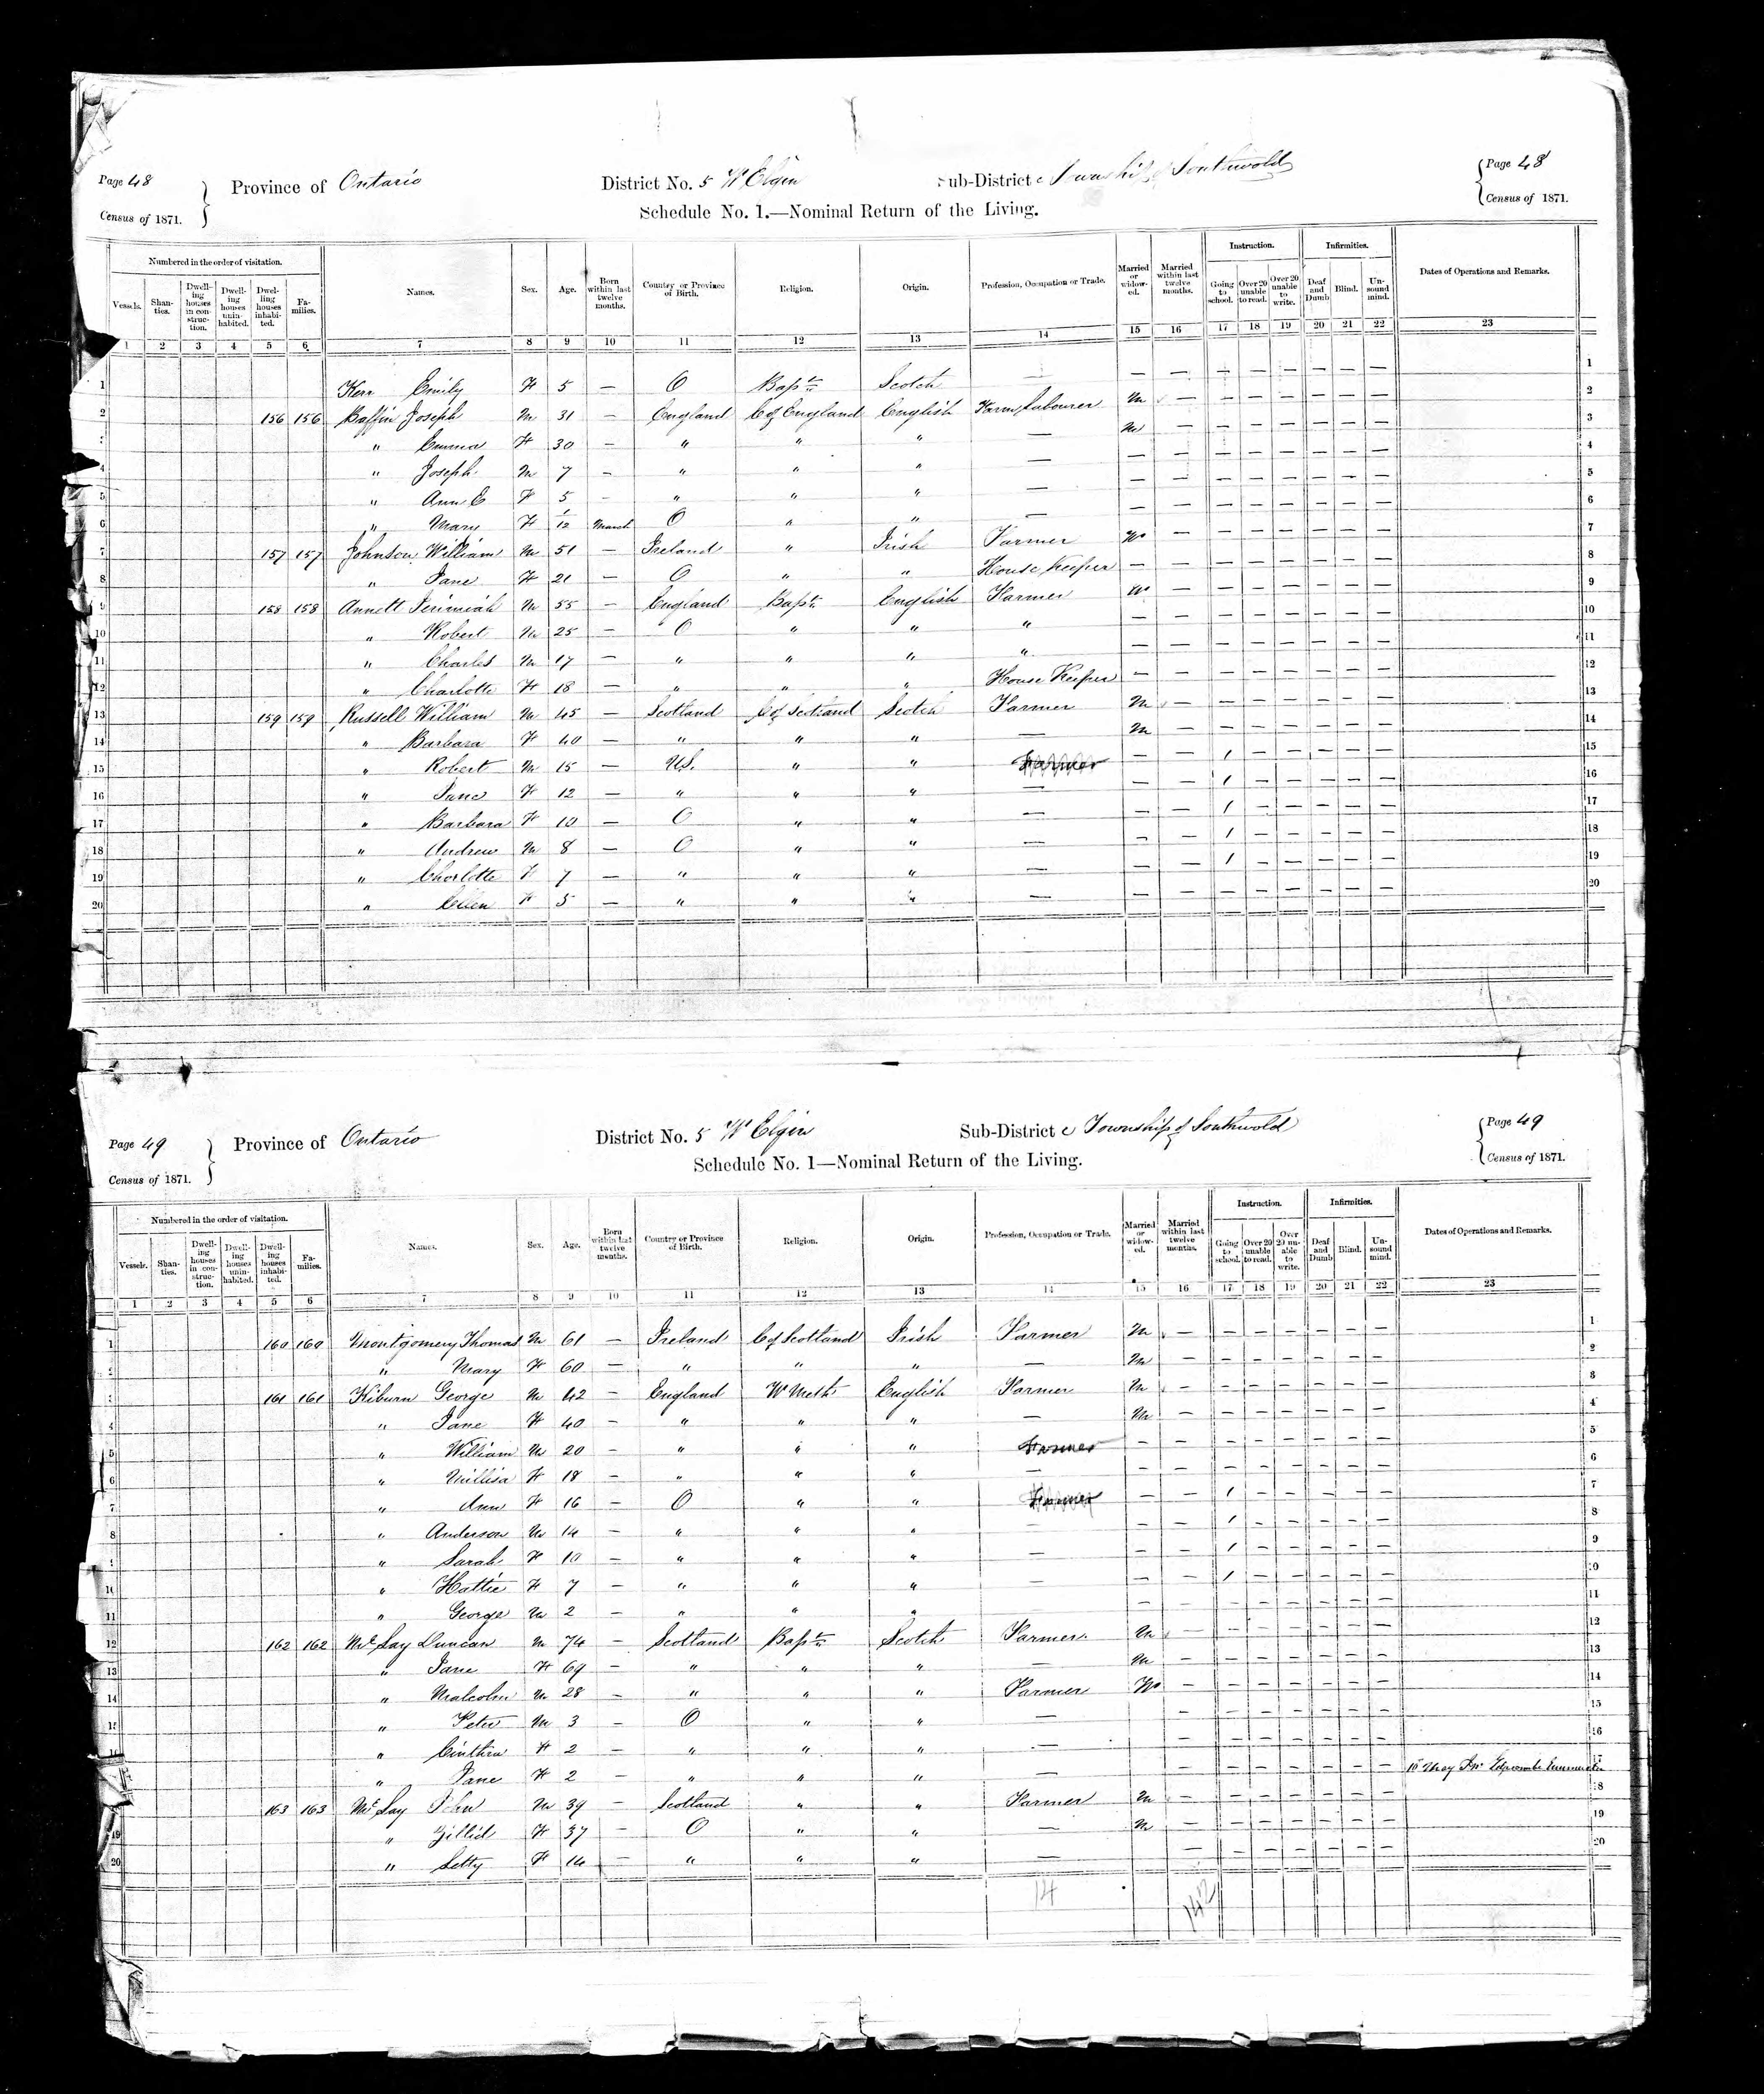 Page 48
Census of 1871.
Province of Ontario
District No. 5 W Elgin
Sub-District c Township of Southwold
Page 48
Census of 1871.
Schedule No. 1.—Nominal Return of the Living.
Numbered in the order of visitation.
Vessels. Shanties. Dwelling houses in construction. Dwelling houses uninhabited. Dwelling houses inhabited. Families. Names. Sex. Age. Born within last twelve months. Country or Province of Birth. Religion. Origin. Profession, Occupation or Trade. Married or widowed. Married within last twelve months. Instruction. Going to school. Over 20 unable to read. Over 20 unable to write. Infirmities. Deaf and Dumb Blind. Unsound mind. Dates of Operations and Remarks.
1 2 3 4 5 6 7 8 9 10 11 12 13 14 15 16 17 18 19 20 21 22 23
1 Kerr Emily F 5 — O Bapt. Scotch — — — — — — — — — 1
2 156 156 Baffin Joseph M 31 — England C of England English Farm Labourer M — — — — — — — 2
" Emma F 30 — " " " — M — — — — — — — 3
4 " Joseph M 7 — " " " — — — — — — — — — 4
5 " Ann E F 5 — " " " — — — — — — — — — 5
6 " Mary F 1/12 March O " " — — — — — — — — — 6
7 157 157 Johnson William M 51 — Ireland " Irish Farmer W — — — — — — — 7
8 " Jane F 21 — O " " House Keeper — — — — — — — — 8
9 158 158 Annett Jerimiah M 55 — England Bapt. English Farmer W — — — — — — — 9
10 " Robert M 25 — O " " " — — — — — — — — 10
11 " Charles M 17 — " " " " — — — — — — — — 11
12 " Charlotte F 18 — " " " House Keeper — — — — — — — — 12
13 159 159 Russell William M 45 — Scotland C of Scotland Scotch Farmer M — — — — — — — 13
14 " Barbara F 40 — " " " — M — — — — — — — 14
15 " Robert M 15 — U.S. " " Farmer — — 1 — — — — — 15
16 " Jane F 12 — " " " — — — 1 — — — — — 16
17 " Barbara F 10 — O " " — — — 1 — — — — — 17
18 " Andrew M 8 — O " " — — — 1 — — — — — 18
19 " Charlotte F 7 — " " " — — — 1 — — — — — 19
20 " Ellen F 5 — " " " — — — — — — — — — 20
Page 49
Census of 1871.
Province of Ontario
District No. 5 W Elgin
Sub-District c Township of Southwold
Page 49
Census of 1871.
Schedule No. 1—Nominal Return of the Living.
Numbered in the order of visitation.
Vessels. Shanties. Dwelling houses in construction. Dwelling houses uninhabited. Dwelling houses inhabited. Families. Names. Sex. Age. Born within last twelve months. Country or Province of Birth. Religion. Origin. Profession, Occupation or Trade. Married or widowed. Married within last twelve months. Instruction. Going to school. Over 20 unable to read. Over 20 unable to write. Infirmities. Deaf and Dumb Blind. Unsound mind. Dates of Operations and Remarks.
1 2 3 4 5 6 7 8 9 10 11 12 13 14 15 16 17 18 19 20 21 22 23
1 160 160 Montgomery Thomas M 61 — Ireland C of Scotland Irish Farmer M — — — — — — — 1
2 " Mary F 60 — " " " — M — — — — — — — 2
161 161 Kiburn George M 42 — England W Meth English Farmer M — — — — — — — 3
4 " Jane F 40 — " " " — M — — — — — — — 4
5 " William M 20 — " " " Farmer — — — — — — — — 5
6 " Millisa F 18 — " " " — — — — — — — — — 6
7 " Ann F 16 — O " " Farmer — — 1 — — — — — 7
8 " Anderson M 14 — " " " — — — 1 — — — — — 8
" Sarah F 10 — " " " — — — 1 — — — — — 9
10 " Hattie F 7 — " " " — — — 1 — — — — — 10
11 " George M 2 — " " " — — — — — — — — 11
12 162 162 McLay Duncan M 74 — Scotland Bapt. Scotch Farmer M — — — — — — — 12
13 " Jane F 69 — " " " — M — — — — — — — 13
14 " Malcolm M 28 — " " " Farmer W — — — — — — — 14
15 " Peter M 3 — O " " — — — — — — — — 15
" Cinthia F 2 — " " " — — — — — — — — 16
" Jane F 2 — " " " — — — — — — — — 15 May Enumerator
163 163 McLay John M 39 — Scotland " " Farmer M — — — — — — — 18
19 " F 37 — O " " — M — — — — — — — 19
20 " Letty F 14 — " " " — — — — — — — — 20
14
142